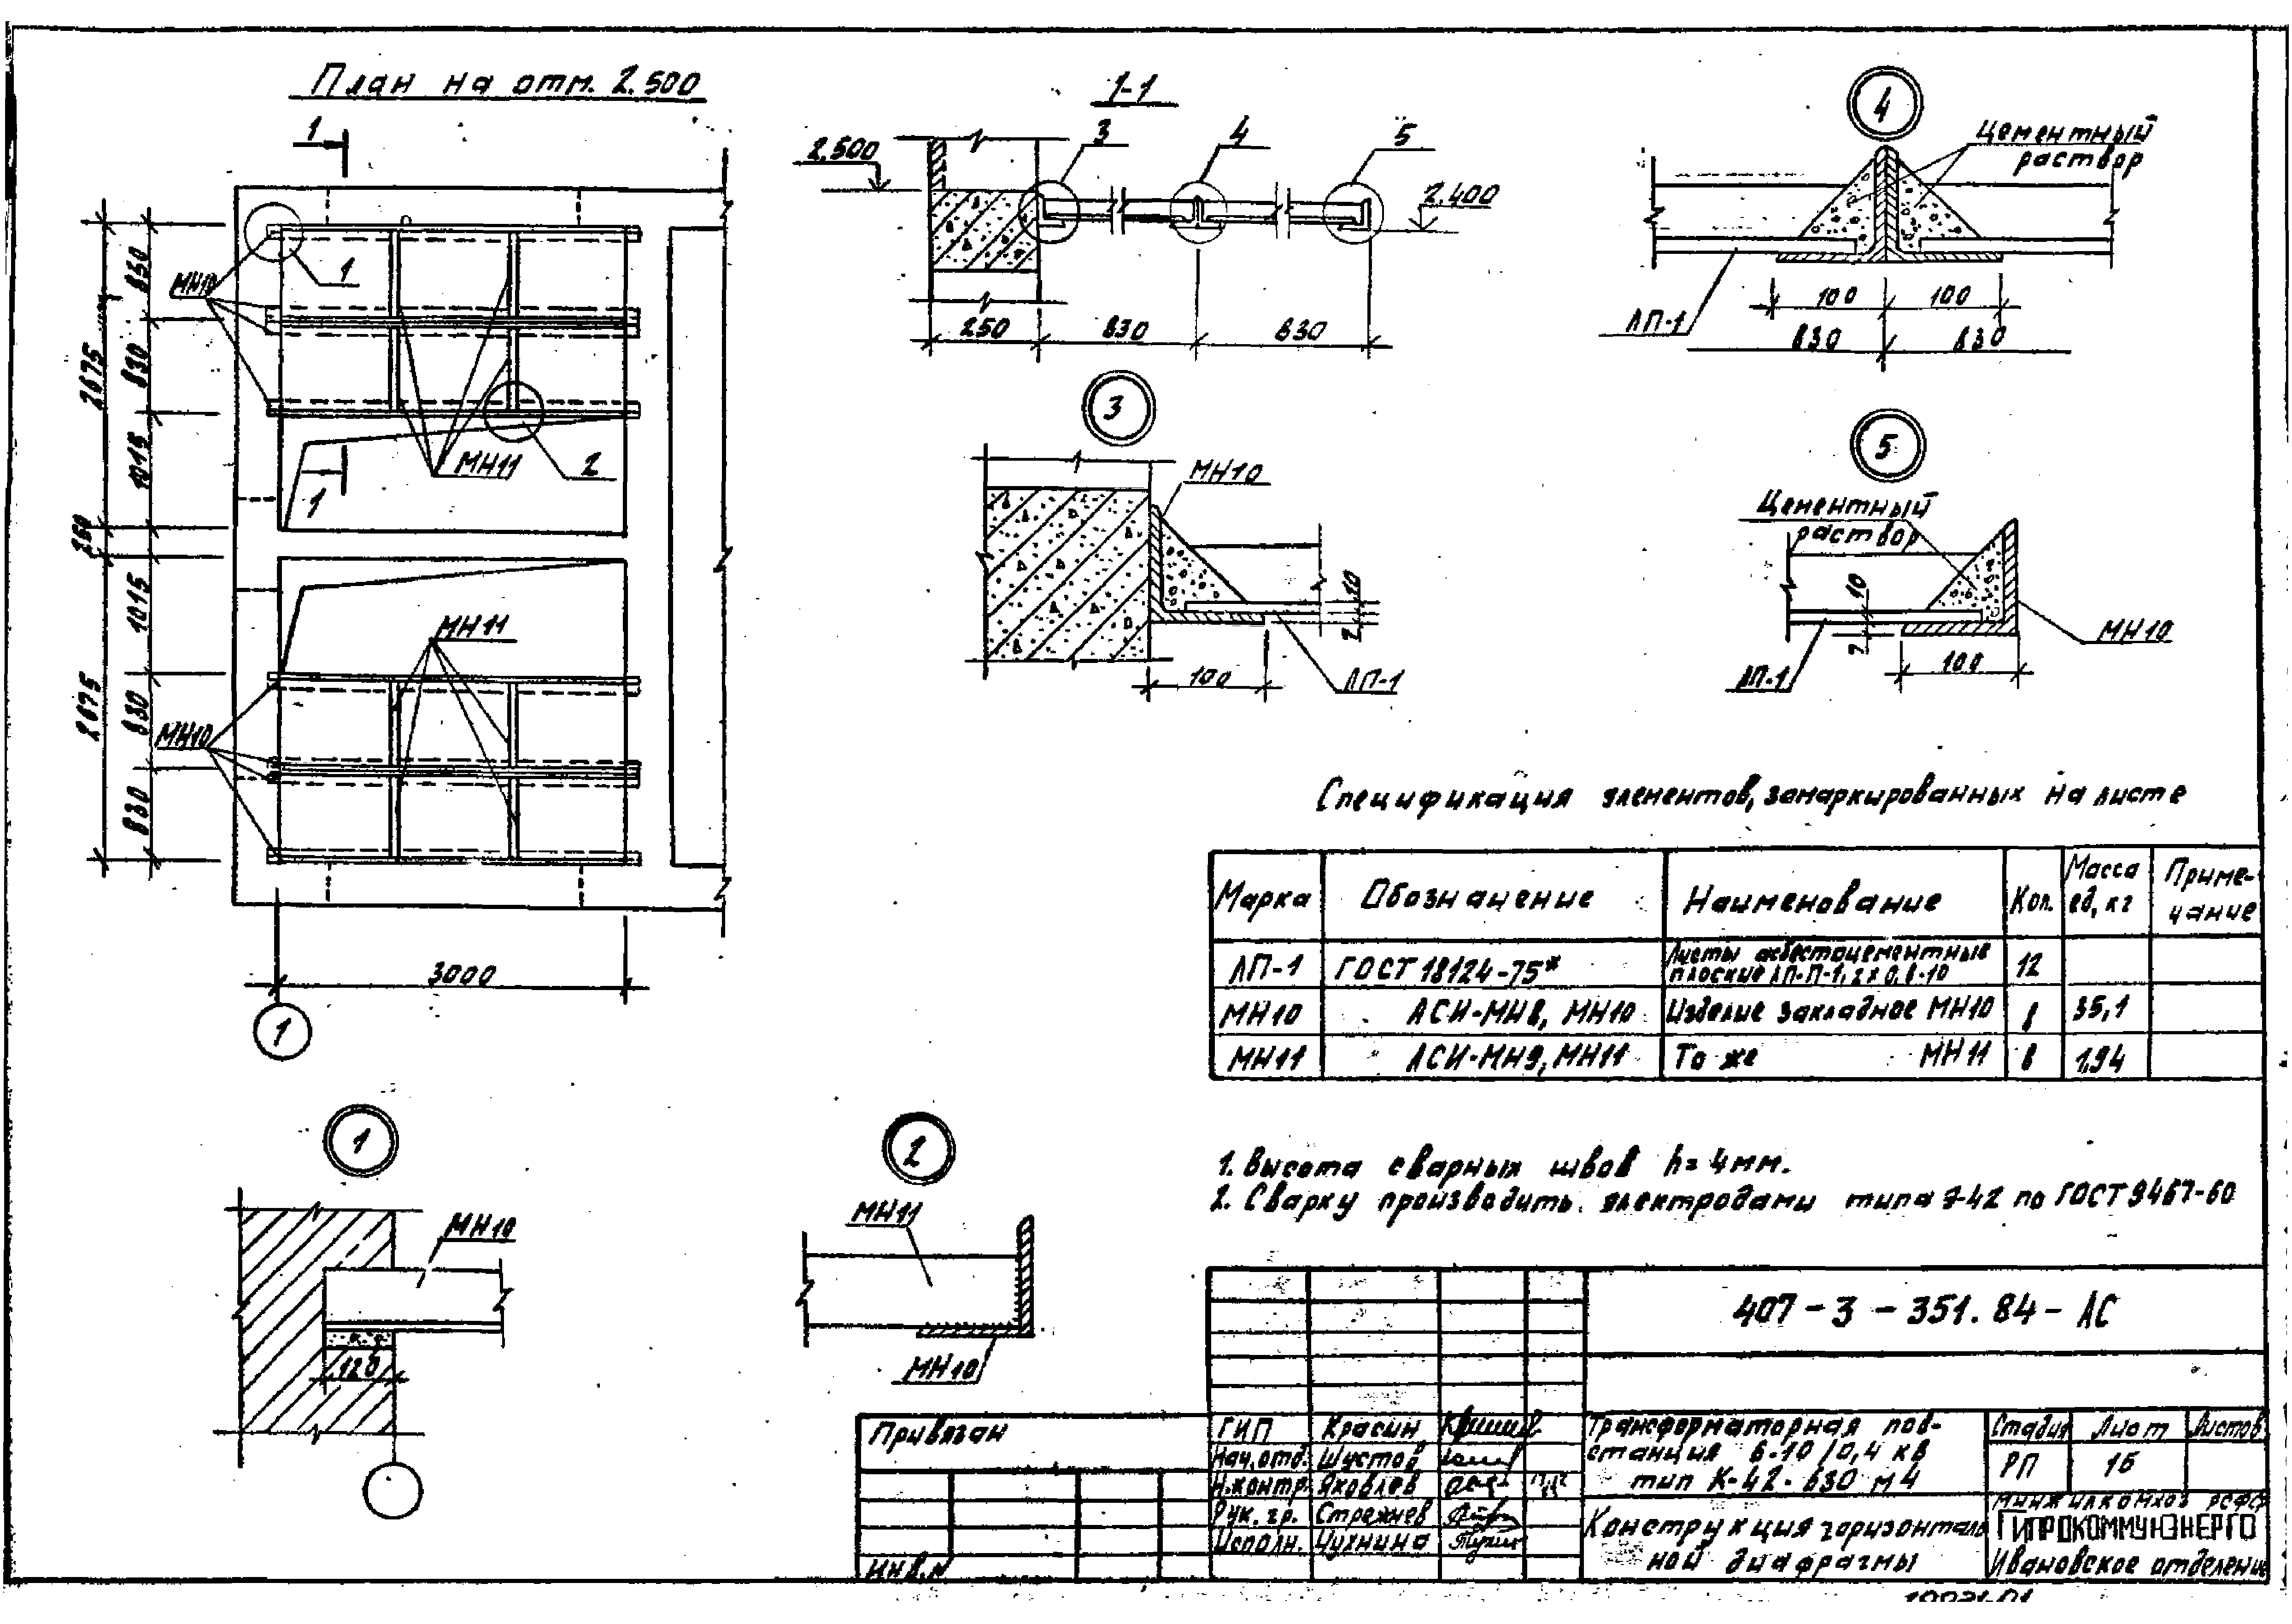 План на отм. 2.500
1
МН10
1
МН11
2
1
830
830
1015
2675
250
1015
830
830
2675
МН11
МН10
3000
1
1-1
2.500
3
4
5
2.400
250
830
830
4
Цементный
раствор
100
100
ЛП-1
830
830
3
МН10
10
7
100
ЛП-1
5
Цементный
раствор
10
7
МН10
100
ЛП-1
Спецификация элементов, замаркированных на листе
Марка Обозначение Наименование Кол. Масса ед, кг Примечание
ЛП-1 ГОСТ 18124-75* Листы асбестоцементные плоские ЛП-П-1,2х0,8-10 12
МН10 АСИ-МН8, МН10 Изделие закладное МН10 8 35,1
МН11 АСИ-МН9, МН11 То же МН11 8 1,94
1
МН10
120
2
МН11
МН10
1. Высота сварных швов h=4мм.
2. Сварку производить электродами типа Э-42 по ГОСТ 9467-60
407-3-351.84-АС
Привязан
Инв.N
ГИП Красин
Нач.отд. Шустов
Н.контр. Яковлев
Рук. гр. Стрежнев
Исполн. Чухнина
Трансформаторная под-
станция 6-10/0,4 кв
тип К-42-630 м4
Стадия Лист Листов
РП 16
Конструкция горизонталь
ной диафрагмы
Минжилкомхоз РСФСР
ГИПРОКОММУНЭНЕРГО
Ивановское отделение